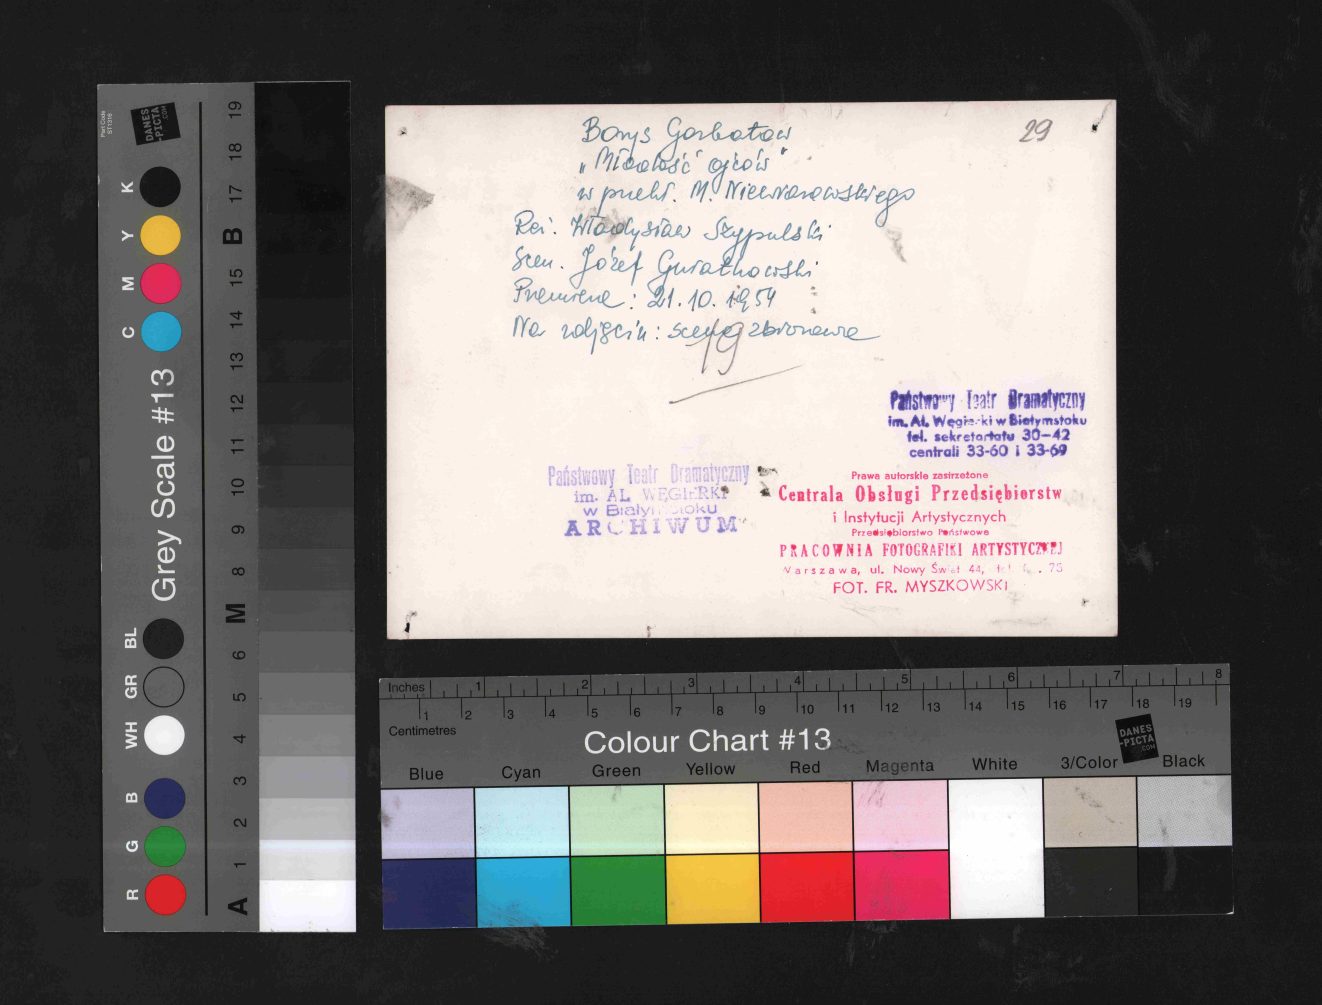 Borys Gorbatow
29
„Młodość ojców"
w przekł. M. Niewiarowskiego
Reż. Władysław Szypulski
Scen. Józef Gurathowski
Premiera: 21.10.1954
Na zdjęciu: scena zbiorowa
19
Państwowy Teatr Dramatyczny
im. Al. Węgierki w Białymstoku
tel. sekretariatu 30-42
centrali 33-60 i 33-69
Państwowy Teatr Dramatyczny
im. AL WĘGIERKI
w Białymstoku
ARCHIWUM
Prawa autorskie zastrzeżone
Centrala Obsługi Przedsiębiorstw
i Instytucji Artystycznych
Przedsiębiorstwo Państwowe
PRACOWNIA FOTOGRAFIKI ARTYSTYCZNEJ
Warszawa, ul. Nowy Świat 44, tel. 75
FOT. FR. MYSZKOWSKI
Part Code
ST1316
DANES
-PICTA
.COM
K Y M C
Grey Scale #13
BL GR WH B G R
19 18 17 B 15 14 13 12 11 10 9 8 M 6 5 4 3 2 1 A
Inches 1 2 3 4 5 6 7 8
1 2 3 4 5 6 7 8 9 10 11 12 13 14 15 16 17 18 19
Centimetres
Colour Chart #13
DANES
-PICTA
.COM
Blue Cyan Green Yellow Red Magenta White 3/Color Black